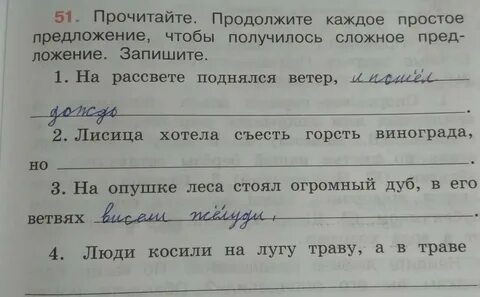 51. Прочитайте. Продолжите каждое простое
предложение, чтобы получилось сложное пред-
ложение. Запишите.
1. На рассвете поднялся ветер, и пошёл
дождь.
2. Лисица хотела съесть горсть винограда,
но
3. На опушке леса стоял огромный дуб, в его
ветвях висели жёлуди.
4. Люди косили на лугу траву, а в траве